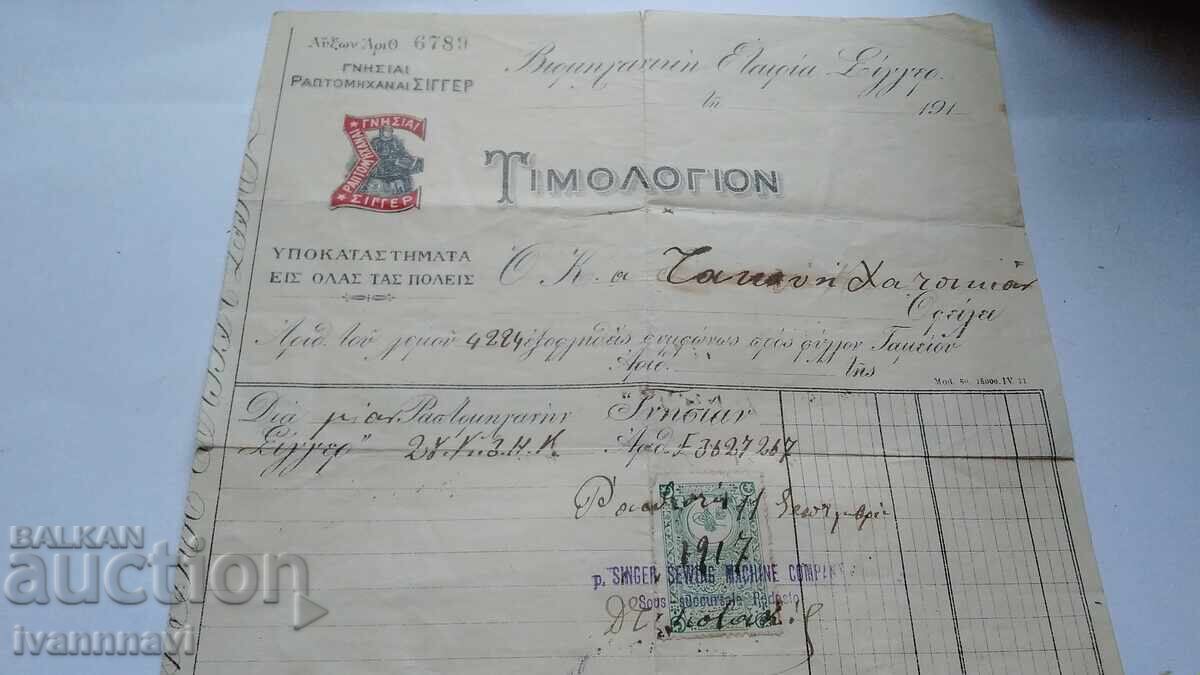 Αὔξων Ἀριθ 6789
ΓΝΗΣΙΑΙ
ΡΑΠΤΟΜΗΧΑΝΑΙ ΣΙΓΓΕΡ
Βιομηχανικὴ Ἑταιρία Σίγγερ.
τῇ 191
ΓΝΗΣΙΑΙ
ΡΑΠΤΟΜΗΧΑΝΑΙ
ΣΙΓΓΕΡ
ΤΙΜΟΛΟΓΙΟΝ
ΥΠΟΚΑΤΑΣΤΗΜΑΤΑ
ΕΙΣ ΟΛΑΣ ΤΑΣ ΠΟΛΕΙΣ
Ὁ Κ. α
Ὀφείλει
Ἀριθ. τοῦ λογ/μοῦ 4224 ἐξοφληθεὶς συμφώνως πρὸς φύλλον Ταμείου
Ἀριθ. τῆς
Mod. 50. 15000. IV. 11
Διὰ μίαν Ραπτομηχανὴν Γνησίαν
Σίγγερ" Ἀριθ. F3627267
11 Σεπτεμβρίου
1917
p. SINGER SEWING MACHINE COMPANY
Sous succursale Rodosto
BALKAN
auction
ivannnavi